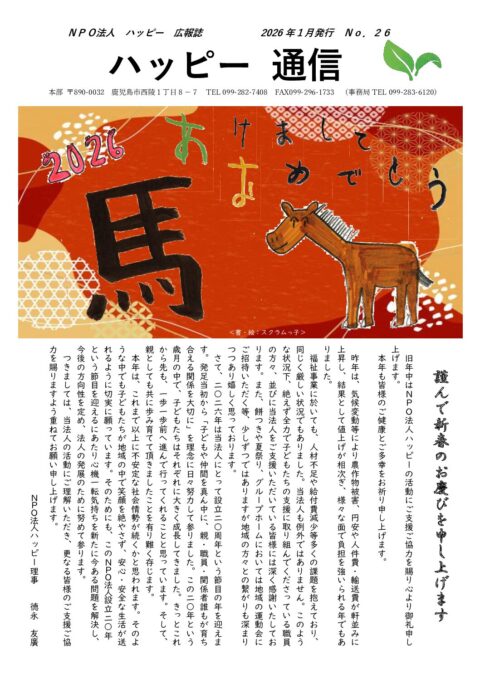 NPO法人 ハッピー 広報誌 2026年1月発行 No. 26
ハッピー 通信
本部 〒890-0032 鹿児島市西陵1丁目8-7 TEL 099-282-7408 FAX099-296-1733 (事務局 TEL 099-283-6120)
2026
あけまして
おめでとう
馬
<書・絵:スクラムっ子>
謹んで新春のお慶びを申し上げます
旧年中はNPO法人ハッピーの活動にご支援ご協力を賜り心より御礼申し
上げます。
本年も皆様のご健康とご多幸をお祈り申し上げます。
昨年は、気候変動等により農作物被害、円安や人件費・輸送費が軒並みに
上昇し、結果として値上げが相次ぎ、様々な面で負担を強いられる年でもあ
りました。
福祉事業に於いても、人材不足や給付費減少等多くの課題を抱えており、
同じく厳しい状況でもありました。当法人も例外ではありません。このよう
な状況下、絶えず全力で子どもたちの支援に取り組んでくださっている職員
の方々、並びに当法人をご支援いただいている皆様には深く感謝いたしてお
ります。また、餅つきや夏祭り、グループホームにおいては地域の運動会に
ご招待いただく等、少しずつではありますが地域の方々との繋がりも深まり
つつあり嬉しく思っております。
さて、二〇二六年は当法人にとって設立二〇周年という節目の年を迎えま
す。発足当初から「子どもや仲間を真ん中に、親・職員・関係者誰もが育ち
合える関係を大切に」を理念に日々努力して参りました。この二〇年という
歳月の中で、子どもたちはそれぞれに大きく成長してきました。きっとこれ
から先も、一歩一歩前へ進んで行ってくれることと思っています。そして、
親としても共に歩み育てて頂きましたことを有り難く存じます。
本年は、これまで以上に不安定な社会情勢が続くかと思われます。そのよ
うな中でも子どもたちが地域の中で笑顔を絶やさず、安心・安全な生活が送
れるように切実に願っています。そのためにも、このNPO法人設立二〇年
という節目を迎えるにあたり心機一転気持ちを新たに今ある問題を解決し、
今後の方向性を定め、法人の発展のために努めて参ります。
つきましては、当法人の活動にご理解いただき、更なる皆様のご支援ご協
力を賜りますよう重ねてお願い申し上げます。
NPO法人ハッピー理事 徳永 友廣